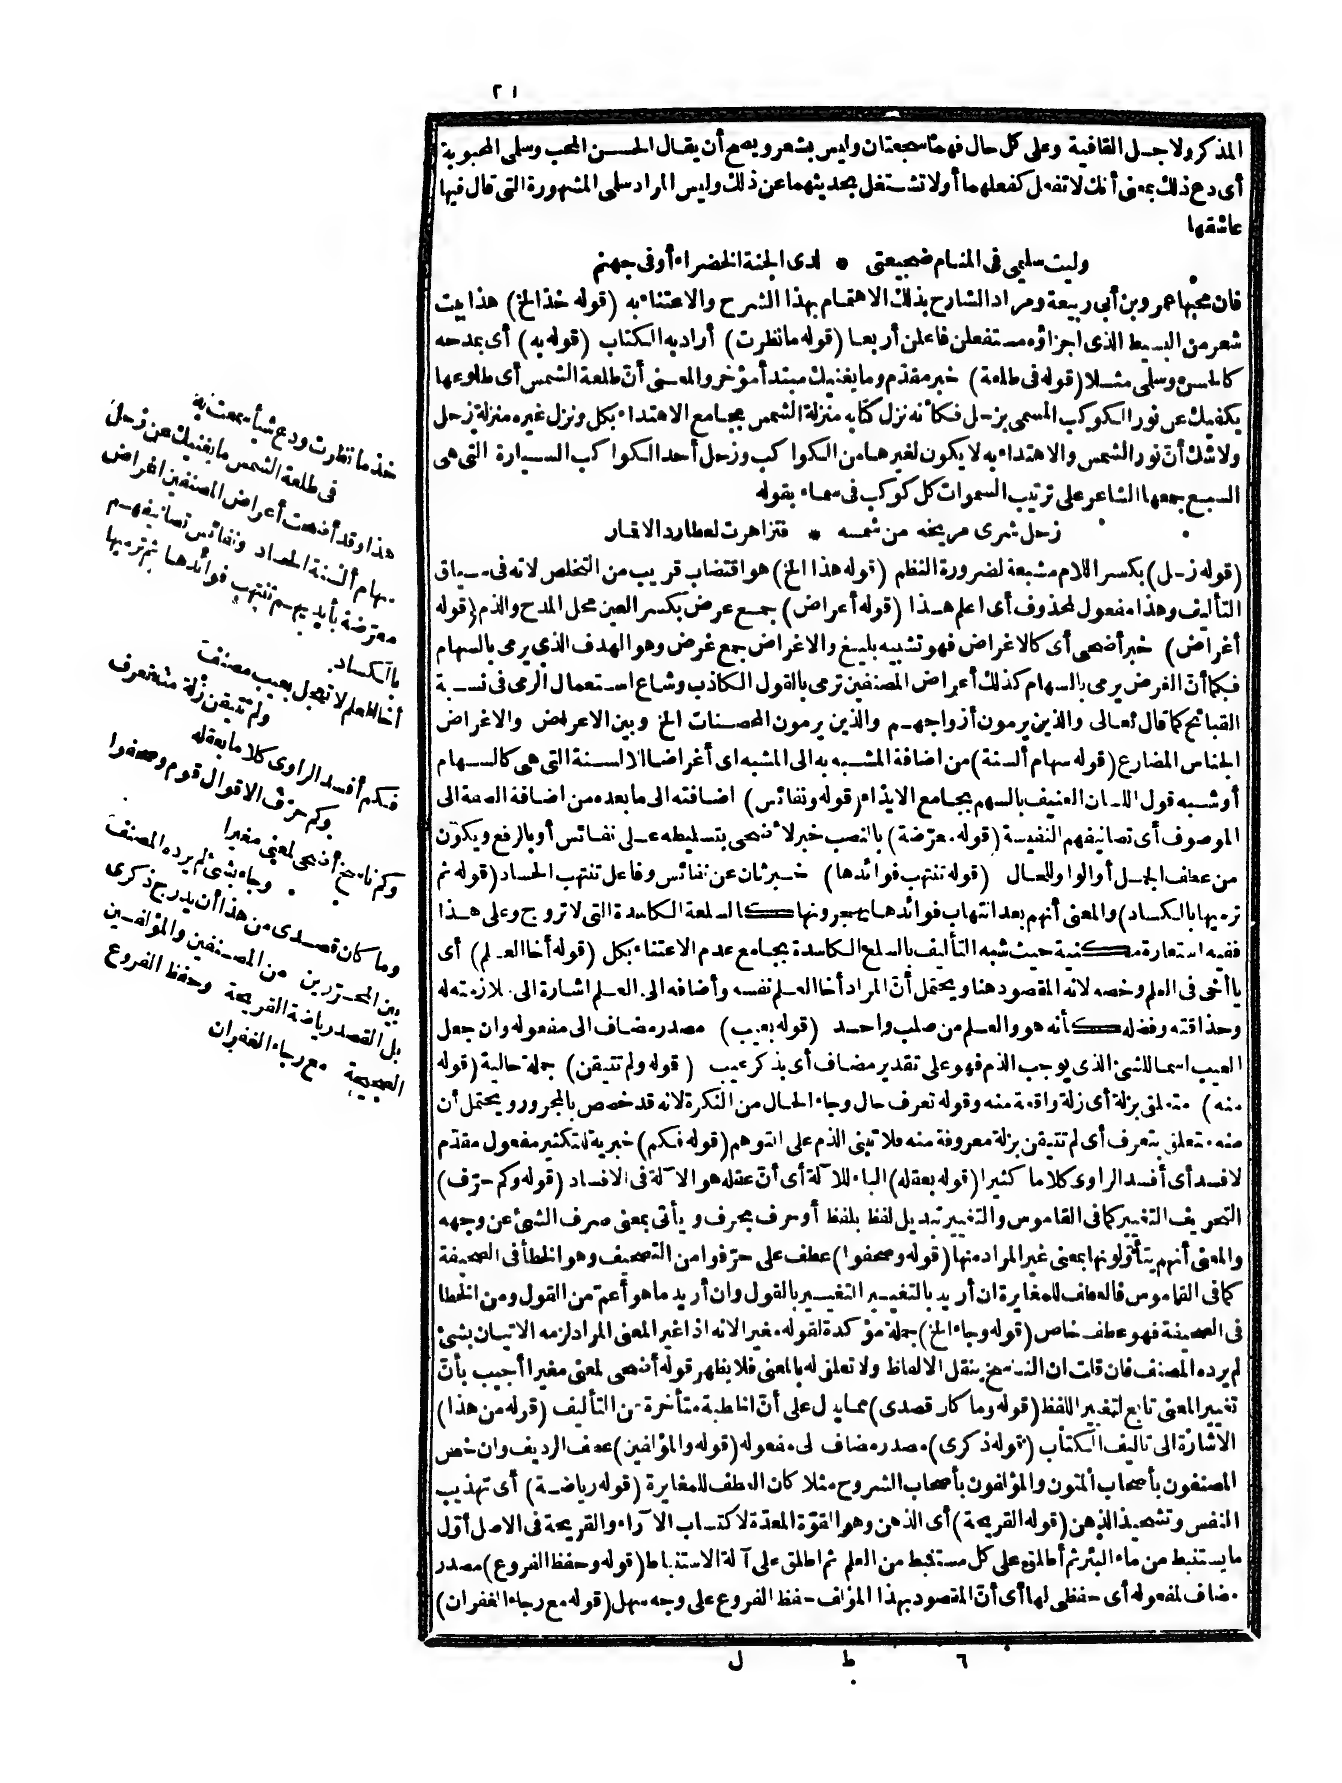 ٢١
المذكر ولاجل القافية وعلى كل حال فهما سجعتان وليس بشعر ويصح أن يقال الحسن المحب وسلى المحبوبة
أى دع ذلك بمعنى أنك لا تفعل كفعلهما أولا تشتغل بحديثهما عن ذلك وليس المراد سلى المشهورة التى قال فيها
عاشقها
وليت سليمى فى المنام ضجيعتى * لدى الجنة الخضراء أو فى جهنم
فان محبها عمرو بن أبى ربيعة ومراد الشارح بذلك الاهتمام بهذا الشرح والاعتناء به (قوله خذ الخ) هذا بيت
شعر من البسيط الذى اجزاؤه مستفعلن فاعلن أربعا (قوله ما نظرت) أراد به الكتاب (قوله به) أى بمدحه
كالحسن وسلى مثلا (قوله فى طلعة) خبر مقدّم وما يغنيك مبتدأ مؤخر والمعنى أنّ طلعة الشمس أى طلوعها
يكفيك عن نور الكوكب المسمى بزحل فكأنه نزل كتابه منزلة الشمس بجامع الاهتداء بكل ونزل غيره منزلة زحل
ولا شك أنّ نور الشمس والاهتداء به لا يكون لغيرها من الكواكب وزحل أحد الكواكب السيارة التى هى
السبع جمعها الشاعر على ترتيب السموات كل كوكب فى سماء بقوله
زحل شرى مريخه من شمسه * فتزاهرت لعطارد الاقار
(قوله زحل) بكسر اللام مشبعة لضرورة النظم (قوله هذا الخ) هو اقتضاب قريب من التخلص لانه فى سياق
التأليف وهذا مفعول لمحذوف أى اعلم هذا (قوله أعراض) جمع عرض بكسر العين محل المدح والذم (قوله
أغراض) خبر أضحى أى كالاغراض فهو تشبيه بليغ والاغراض جمع غرض وهو الهدف الذى يرمى بالسهام
فكما أنّ الغرض يرمى بالسهام كذلك أعراض المصنفين ترمى بالقول الكاذب وشاع استعمال الرمى فى نسبة
القبائح كما قال تعالى والذين يرمون أزواجهم والذين يرمون المحصنات الخ وبين الاعراض والاغراض
الجناس المضارع (قوله سهام ألسنة) من اضافة المشبه به الى المشبه اى أغراضا لالسنة التى هى كالسهام
أو شبه قول اللسان العنيف بالسهم بجامع الايذاء (قوله ونفائس) اضافته الى ما بعده من اضافة الصفة الى
الموصوف أى تصانيفهم النفيسة (قوله معرّضة) بالنصب خبر لأضحى بتسليطه على نفائس أو بالرفع ويكون
من عطف الجمل أو الواو للحال (قوله تنتهب فوائدها) خبر ثان عن نفائس وفاعل تنتهب الحساد (قوله ثم
ترميها بالكساد) والمعنى أنهم بعد انتهاب فوائدها يهجرونها كالسلعة الكاسدة التى لا تروج وعلى هذا
ففيه استعارة مكنية حيث شبه التأليف بالسلع الكاسدة بجامع عدم الاعتناء بكل (قوله أخا العلم) أى
يا أخى فى العلم وخصه لانه المقصود هنا ويحتمل أنّ المراد أخا العلم نفسه وأضافه الى العلم اشارة الى ملازمته له
وحذاقته وفضله كأنه هو والعلم من صلب واحد (قوله بعيب) مصدر مضاف الى مفعوله وان جعل
العيب اسما للشئ الذى يوجب الذم فهو على تقدير مضاف أى بذكر عيب (قوله ولم تتيقن) جملة حالية (قوله
منه) متعلق بزلة أى زلة واقعة منه وقوله تعرف حال وجاء الحال من النكرة لانه قد خصص بالمجرور ويحتمل أن
منه متعلق بتعرف أى لم تتيقن بزلة معروفة منه فلا تبنى الذم على التوهم (قوله فكم) خبرية للتكثير مفعول مقدّم
لافسد أى أفسد الراوى كلاما كثيرا (قوله بعقله) الباء للآلة أى أنّ عقله هو الآلة فى الافساد (قوله وكم حرّف)
التحريف التغيير كما فى القاموس والتغيير تبديل لفظ بلفظ أو حرف بحرف ويأتى بمعنى صرف الشئ عن وجهه
والمعنى أنهم يتأوّلونها بمعنى غير المراد منها (قوله وصحفوا) عطف على حرّفوا من التصحيف وهو الخطأ فى الصحيفة
كما فى القاموس فالعطف للمغايرة ان أريد بالتغيير التغيير بالقول وان أريد ما هو أعمّ من القول ومن الخطا
فى الصحيفة فهو عطف خاص (قوله وجاء الخ) جملة مؤكدة لقوله مغيرا لانه اذا غير المعنى المراد لزمه الاتيان بشئ
لم يرده المصنف فان قلت ان الناسخ ينقل الالفاظ ولا تعلق له بالمعنى فلا يظهر قوله أضحى لمعنى مغيرا أجيب بأنّ
تغيير المعنى تابع لتغيير اللفظ (قوله وما كان قصدى) مما يدل على أنّ الخطبة متأخرة عن التأليف (قوله من هذا)
الاشارة الى تأليف الكتاب (قوله ذكرى) مصدر مضاف لى مفعوله (قوله والمؤلفين) عطف الرديف وان خص
المصنفون بأصحاب المتون والمؤلفون بأصحاب الشروح مثلا كان العطف للمغايرة (قوله رياضة) أى تهذيب
النفس وتشحيذ الذهن (قوله القريحة) أى الذهن وهو القوّة المعدّة لاكتساب الآراء والقريحة فى الاصل أوّل
ما يستنبط من ماء البئر ثم أطلق على كل مستنبط من العلم ثم اطلق على آلة الاستنباط (قوله وحفظ الفروع) مصدر
مضاف لمفعوله أى حفظى لها أى أنّ المقصود بهذا المؤلف حفظ الفروع على وجه سهل (قوله مع رجاء الغفران)
٦ ط ل
خذ ما نظرت ودع شيأ سمعت به
فى طلعة الشمس ما يغنيك عن زحل
هذا وقد أضحت أعراض المصنفين اغراض
سهام ألسنة الحساد ونفائس تصانيفهم
معرّضة بأيديهم تنتهب فوائدها ثم ترميها
بالكساد
أخا العلم لا تعجل بعيب مصنف
ولم تتيقن زلة منه تعرف
فكم أفسد الراوى كلاما بعقله
وكم حرّف الاقوال قوم وصحفوا
وكم ناسخ أضحى لمعنى مغيرا
وجاء بشئ لم يرده المصنف
وما كان قصدى من هذا أن يدرج ذكرى
بين المحررين من المصنفين والمؤلفين
بل القصد رياضة القريحة وحفظ الفروع
الصحيحة مع رجاء الغفران